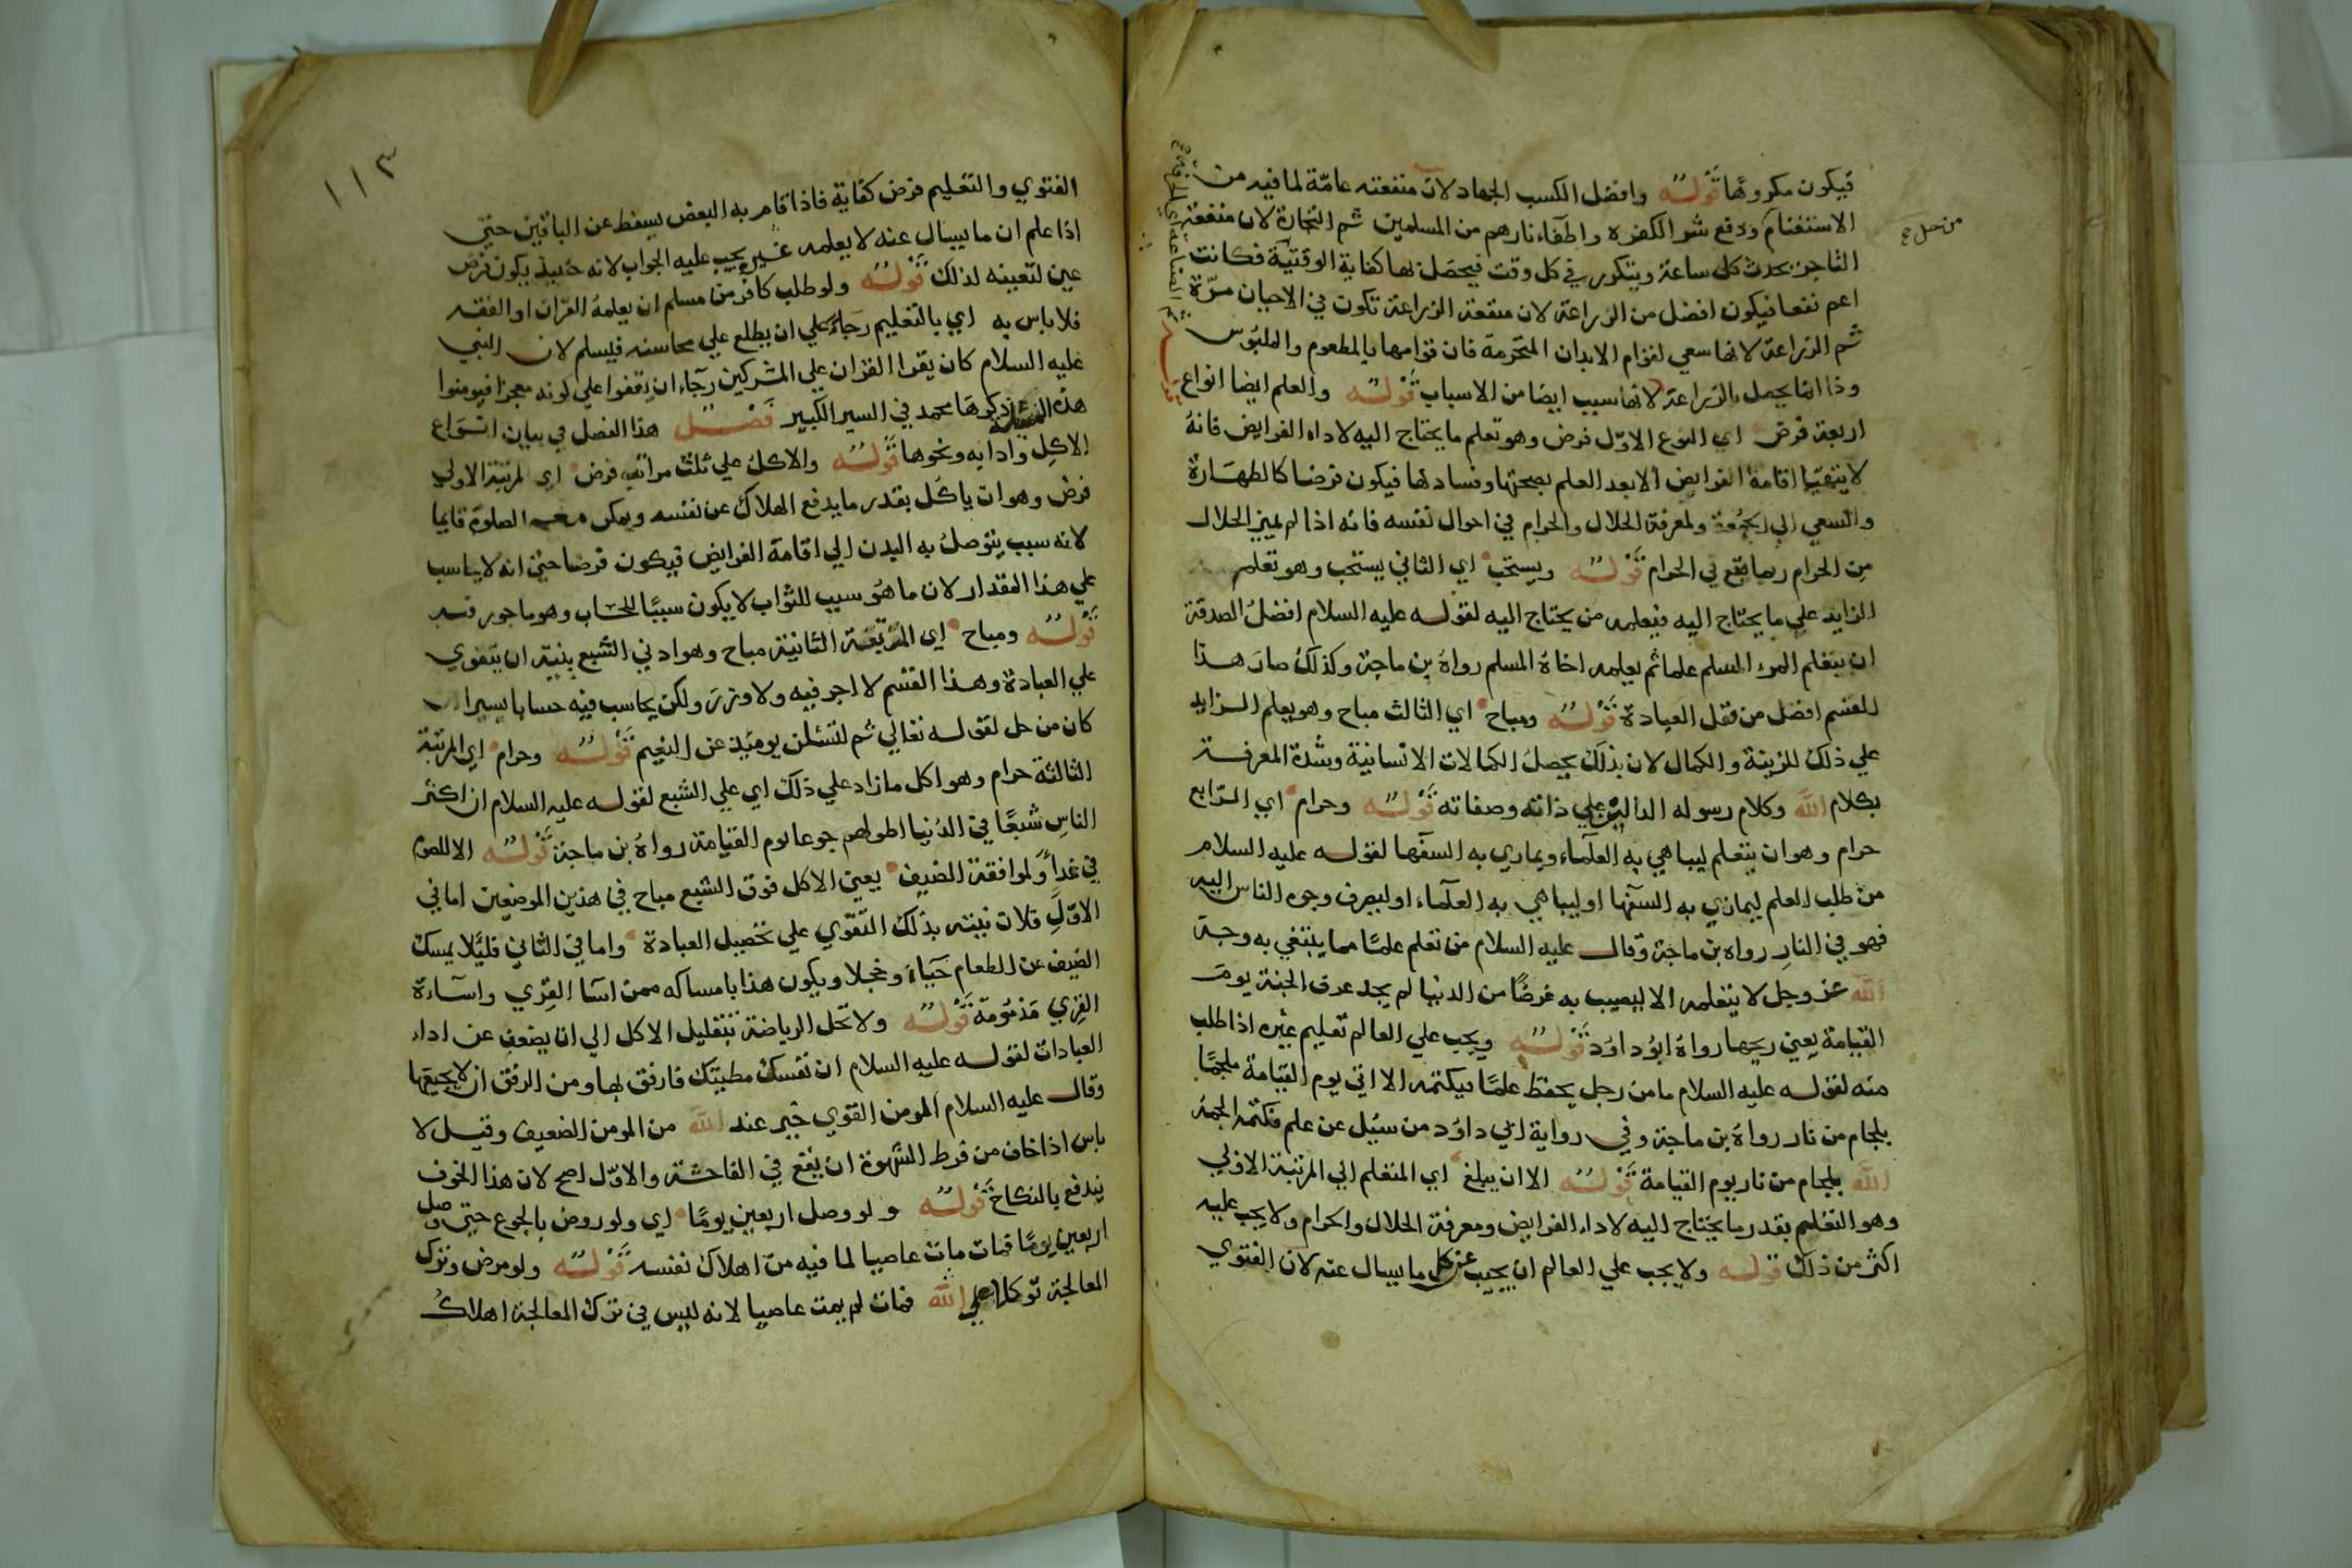 فيكون مكروها قوله وافضل الكسب الجهاد لان منفعته عامّة لما فيه من
الاستغنام ودفع شر الكفرة واطفاء نارهم من المسلمين ثم التجارة لان منفعة
التاجر تحدث كل ساعة ويتكرر في كل وقت فيحصل لها كفاية الوقتية فكانت
اعم نفعا فيكون افضل من الزراعة لان منفعة الزراعة تكون في الاحيان مرّة
ثم الزراعة لانها سعي لقوام الابدان المحترمة فان قوامها بالمطعوم والملبوس
وذا انما يحصل بالزراعة لانها سبب ايضا من الاسباب قوله والعلم ايضا انواع
اربعة فرض اي النوع الاوّل فرض وهو تعلم ما يحتاج اليه لاداء الفرايض فانهُ
لا يتهيّا اقامة الفرايض الا بعد العلم بصحتها وفسادها فيكون فرضا كالطهارة
والسعي الي الجمعة ولمعرفة الحلال والحرام في احوال نفسه فانه اذا لم يميز الحلال
من الحرام ربما يقع في الحرام قوله ويستحب اي الثاني يستحب وهو تعلم
الزايد علي ما يحتاج اليه فيعلمه من يحتاج اليه لقوله عليه السلام افضل الصدقة
ان يتعلم المرء المسلم علما ثم يعلمه اخاهُ المسلم رواهُ بن ماجة وكذلك صار هذا
القسم افضل من نفل العبادة قوله ومباح اي الثالث مباح وهو يعلم الزايد
علي ذلك للزينة والكمال لان بذلك يحصل الكمالات الانسانية وشدة المعرفة
بكلام الله وكلام رسوله الدالين علي ذاته وصفاته قوله وحرام اي الرّابع
حرام وهو ان يتعلم ليباهي به العلماء ويماري به السفها لقوله عليه السلام
من طلب العلم ليماري به السفها او ليباهي به العلماء او ليصرف وجوه الناس اليه
فهو في النار رواه بن ماجة وقال عليه السلام من تعلم علمًا مما يبتغي به وجه
الله عز وجل لا يتعلمه الا ليصيب به غرضًا من الدنيا لم يجد عرف الجنة يوم
القيامة يعني ريحها رواهُ ابو داوُد قوله ويجب علي العالم تعليم غيره اذا طلب
منه لقوله عليه السلام ما من رجل يحفظ علمًا فيكتمه الا اتي يوم القيامة ملجمًا
بلجام من نار رواهُ بن ماجة وفي رواية ابي داوُد من سُيل عن علم فكتمه الجمهُ
الله بلجام من نار يوم القيامة قوله الا ان يبلغ اي المتعلم الي المرتبة الاولي
وهو التعليم بقدر ما يحتاج اليه لاداء الفرايض ومعرفة الحلال والحرام ولا يجب عليه
اكثر من ذلك قوله ولا يجب علي العالم ان يجيب عن كل ما يسال عنه لان الفتوي
١١٣
الفتوي والتعليم فرض كفاية فاذا قام به البعض يسقط عن الباقين حتي
اذا علم ان ما يسال عنه لا يعلمه غيره يجب عليه الجواب لانه حينيذ يكون فرض
عين لتعينه لذلك قوله ولو طلب كافر من مسلم ان يعلمهُ القران او الفقه
فلا باس به اي بالتعليم رجاء علي ان يطلع علي محاسنه فيسلم لان النبي
عليه السلام كان يقرا القران علي المشركين رجاء ان يقفوا علي كونه معجزا فيومنوا
هذه المسئلة ذكرها محمد في السير الكبير فصل هذا الفصل في بيان انواع
الاكل وادابه ونحوها قوله والاكل علي ثلث مراتب فرض اي المرتبة الاولي
فرض وهو ان ياكل بقدر ما يدفع الهلاك عن نفسه ويمكن معه الصلوة قايما
لانه سبب يتوصل به البدن الي اقامة الفرايض فيكون فرضا حتي انه لا يحاسب
علي هذا المقدار لان ما هو سبب للثواب لا يكون سببًا للحساب وهو ماجور فيه
قوله ومباح اي المرتبة الثانية مباح وهو ادني الشبع بنية ان يتقوي
علي العبادة وهذا القسم لا اجر فيه ولا وزر ولكن يحاسب فيه حسابا يسيرا ان
كان من حل لقوله تعالي ثم لتسئلن يوميذ عن النعيم قوله وحرام اي المرتبة
الثالثة حرام وهو اكل ما زاد علي ذلك اي علي الشبع لقوله عليه السلام ان اكثر
الناس شبعًا في الدُنيا اطولهم جوعا يوم القيامة رواهُ بن ماجة قوله الا للصوم
في غدٍ او لموافقة الضيف يعني الاكل فوق الشبع مباح في هذين الموضعين اما في
الاوّل فلان نيته بذلك التقوّي علي تحصيل العبادة واما في الثاني فليلا يمسك
الضيف عن الطعام حياءً وخجلا ويكون هذا بامساكه ممن اسا القري واساءة
القري مذمومة قوله ولا تحل الرياضة بتقليل الاكل الي ان يضعف عن اداء
العبادات لقوله عليه السلام ان نفسك مطيتك فارفق بها ومن الرفق ان لا يجيعها
وقال عليه السلام المومن القوي خير عند الله من المومن الضعيف وقيل لا
باس اذا خاف من فرط الشهوة ان يقع في الفاحشة والاوّل اصح لان هذا الخوف
يندفع بالنكاح قوله ولو وصل اربعين يومًا اي ولو روض بالجوع حتي وصل
اربعين يومًا فمات مات عاصيا لما فيه من اهلاك نفسه قوله ولو مرض وترك
المعالجة توكلا علي الله فمات لم يمت عاصيا لانه ليس في ترك المعالجة اهلاك